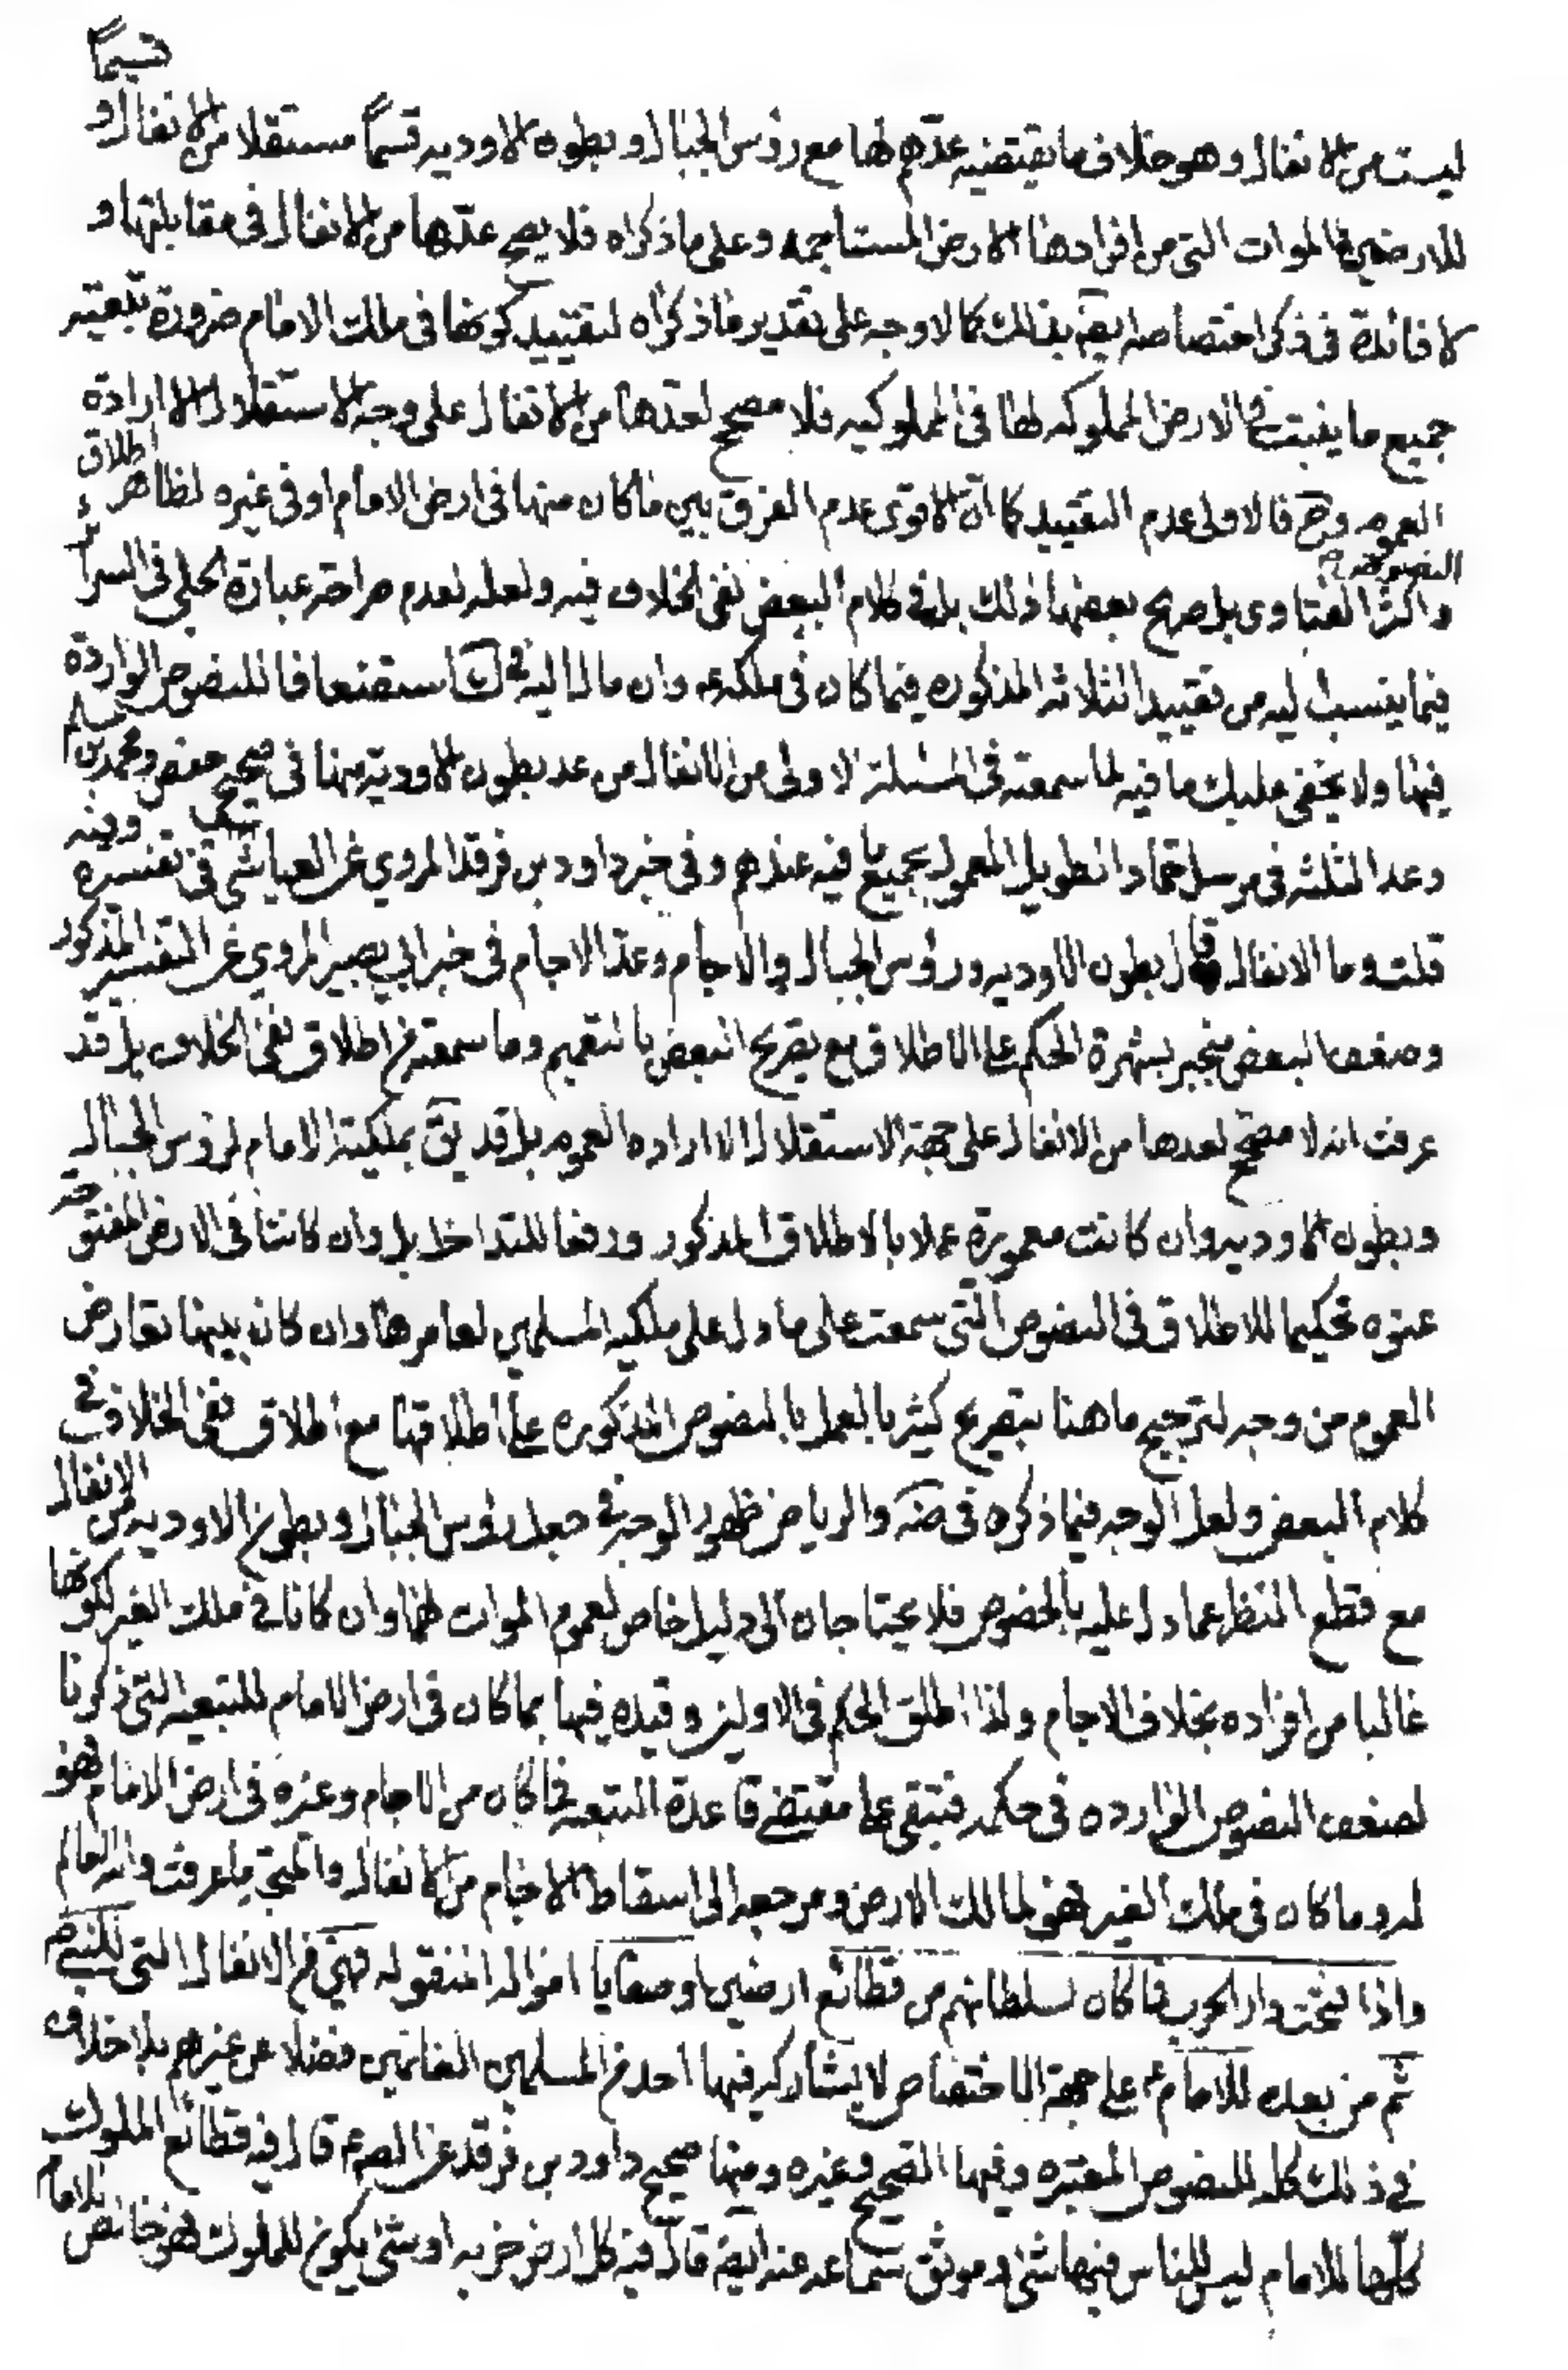 قسيماً
ليست من الانفال وهو خلاف ما يقتضيه عدّهم لها مع رؤس الجبال وبطون الاوديه قسماً مستقلا من الانفال و
للارضين الموات التي من افرادها الارض المستاجمه وعلى ما ذكراه فلا يصح عدّها من الانفال في مقابلتها و
لا فائدة في ذكر اختصاصه بذلك كما لا وجه على تقدير ما ذكراه لتقييد كونها في ملك الامام ضرورة تبعيته
جميع ما ينبت في الارض المملوكه لها في المملوكيه فلا مصحح لعدها من الانفال على وجه الاستقلال الا ارادة
العموم وح فالاولى عدم التقييد كما انّ الاقوى عدم الفرق بين ما كان منها في ارض الامام او في غيره لظاهر اطلاق
النصوص
واكثر الفتاوى بل صريح بعضها ذلك بل في كلام البعض نفى الخلاف فيه ولعله لعدم صراحة عبارة الحلي في السرائر
فيما ينسب اليه من تقييد الثلاثه المذكوره فيما كان في ملكه وان مال اليه في ك استضعافا للنصوص الواردة
فيها ولا يخفى عليك ما فيه لما سمعته في المسئلة الاولى من الانفال من عد بطون الاودية منها في صحيح حفص ومحمد بن مسلم
وعد الثلثه في مرسل حماد الطويل المعمول بجميع ما فيه عندهم وفي خبر داود بن فرقد المروي عن العياشي في تفسيره وفيه
قلت وما الانفال قال بطون الاوديه ورؤس الجبال والاجام وعد الاجام في خبر ابي بصير المروي عن التفسير المذكور
وضعف البعض منجبر بشهرة الحكم على الاطلاق مع تصريح البعض بالتعميم وما سمعته من اطلاق نفى الخلاف بل قد
عرفت انه لا مصحح لعدها من الانفال على جهة الاستقلال الا اراده العموم بل قد يق بملكية الامام لرؤس الجبال
وبطون الاوديه وان كانت معمورة عملا بالاطلاق المذكور ودفعا للتداخل بل وان كانتا في الارض المفتوحة
عنوه تحكيما للاطلاق في النصوص التي سمعت على ما دل على ملكيه المسلمين لعامرها وان كان بينهما تعارض
العموم من وجه لترجيح ما هنا بتصريح كثير بالعمل بالنصوص المذكوره على اطلاقها مع اطلاق نفى الخلاف في
كلام البعض ولعل الوجه فيما ذكره في ضه والرياض ظهور الوجه في جعل رؤس الجبال وبطون الاوديه من الانفال
مع قطع النظر عما دل عليه بالخصوص فلا يحتاجان الى دليل خاص لعموم الموات لهما وان كانا في ملك الغير لكونها
غالبا من افراده بخلاف الاجام ولذا اطلق الحكم في الاولين وقيده فيها بما كان في ارض الامام للتبعيه التي ذكرنا
لضعف النصوص الوارده في حكمه فتبقى على مقتضى قاعدة التبعيه فما كان من الاجام وغيره في ارض الامام فهو
له وما كان في ملك الغير فهو لمالك الارض ومرجعه الى اسقاط الاجام من الانفال والمتجه ما عرفت والله العالم
واذا فتحت دار الحرب فما كان لسلطانهم من قطائع ارضين او صفايا امواله المنقوله فهي من الانفال التي للنبي ص
ثم من بعده للامام ع على جهة الاختصاص لا يشاركه فيها احد من المسلمين الغانمين فضلا عن غيرهم بلا خلاف
في ذلك كله للنصوص المعتبره وفيها الصحيح وغيره ومنها صحيح داود بن فرقد عن الص ع قال فيه قطائع الملوك
كلّها للامام ليس للناس فيها شئ وموثق سماعه عنه ايضه قال فيه كل ارض خربه او شئ يكون للملوك فهو خالص للامام